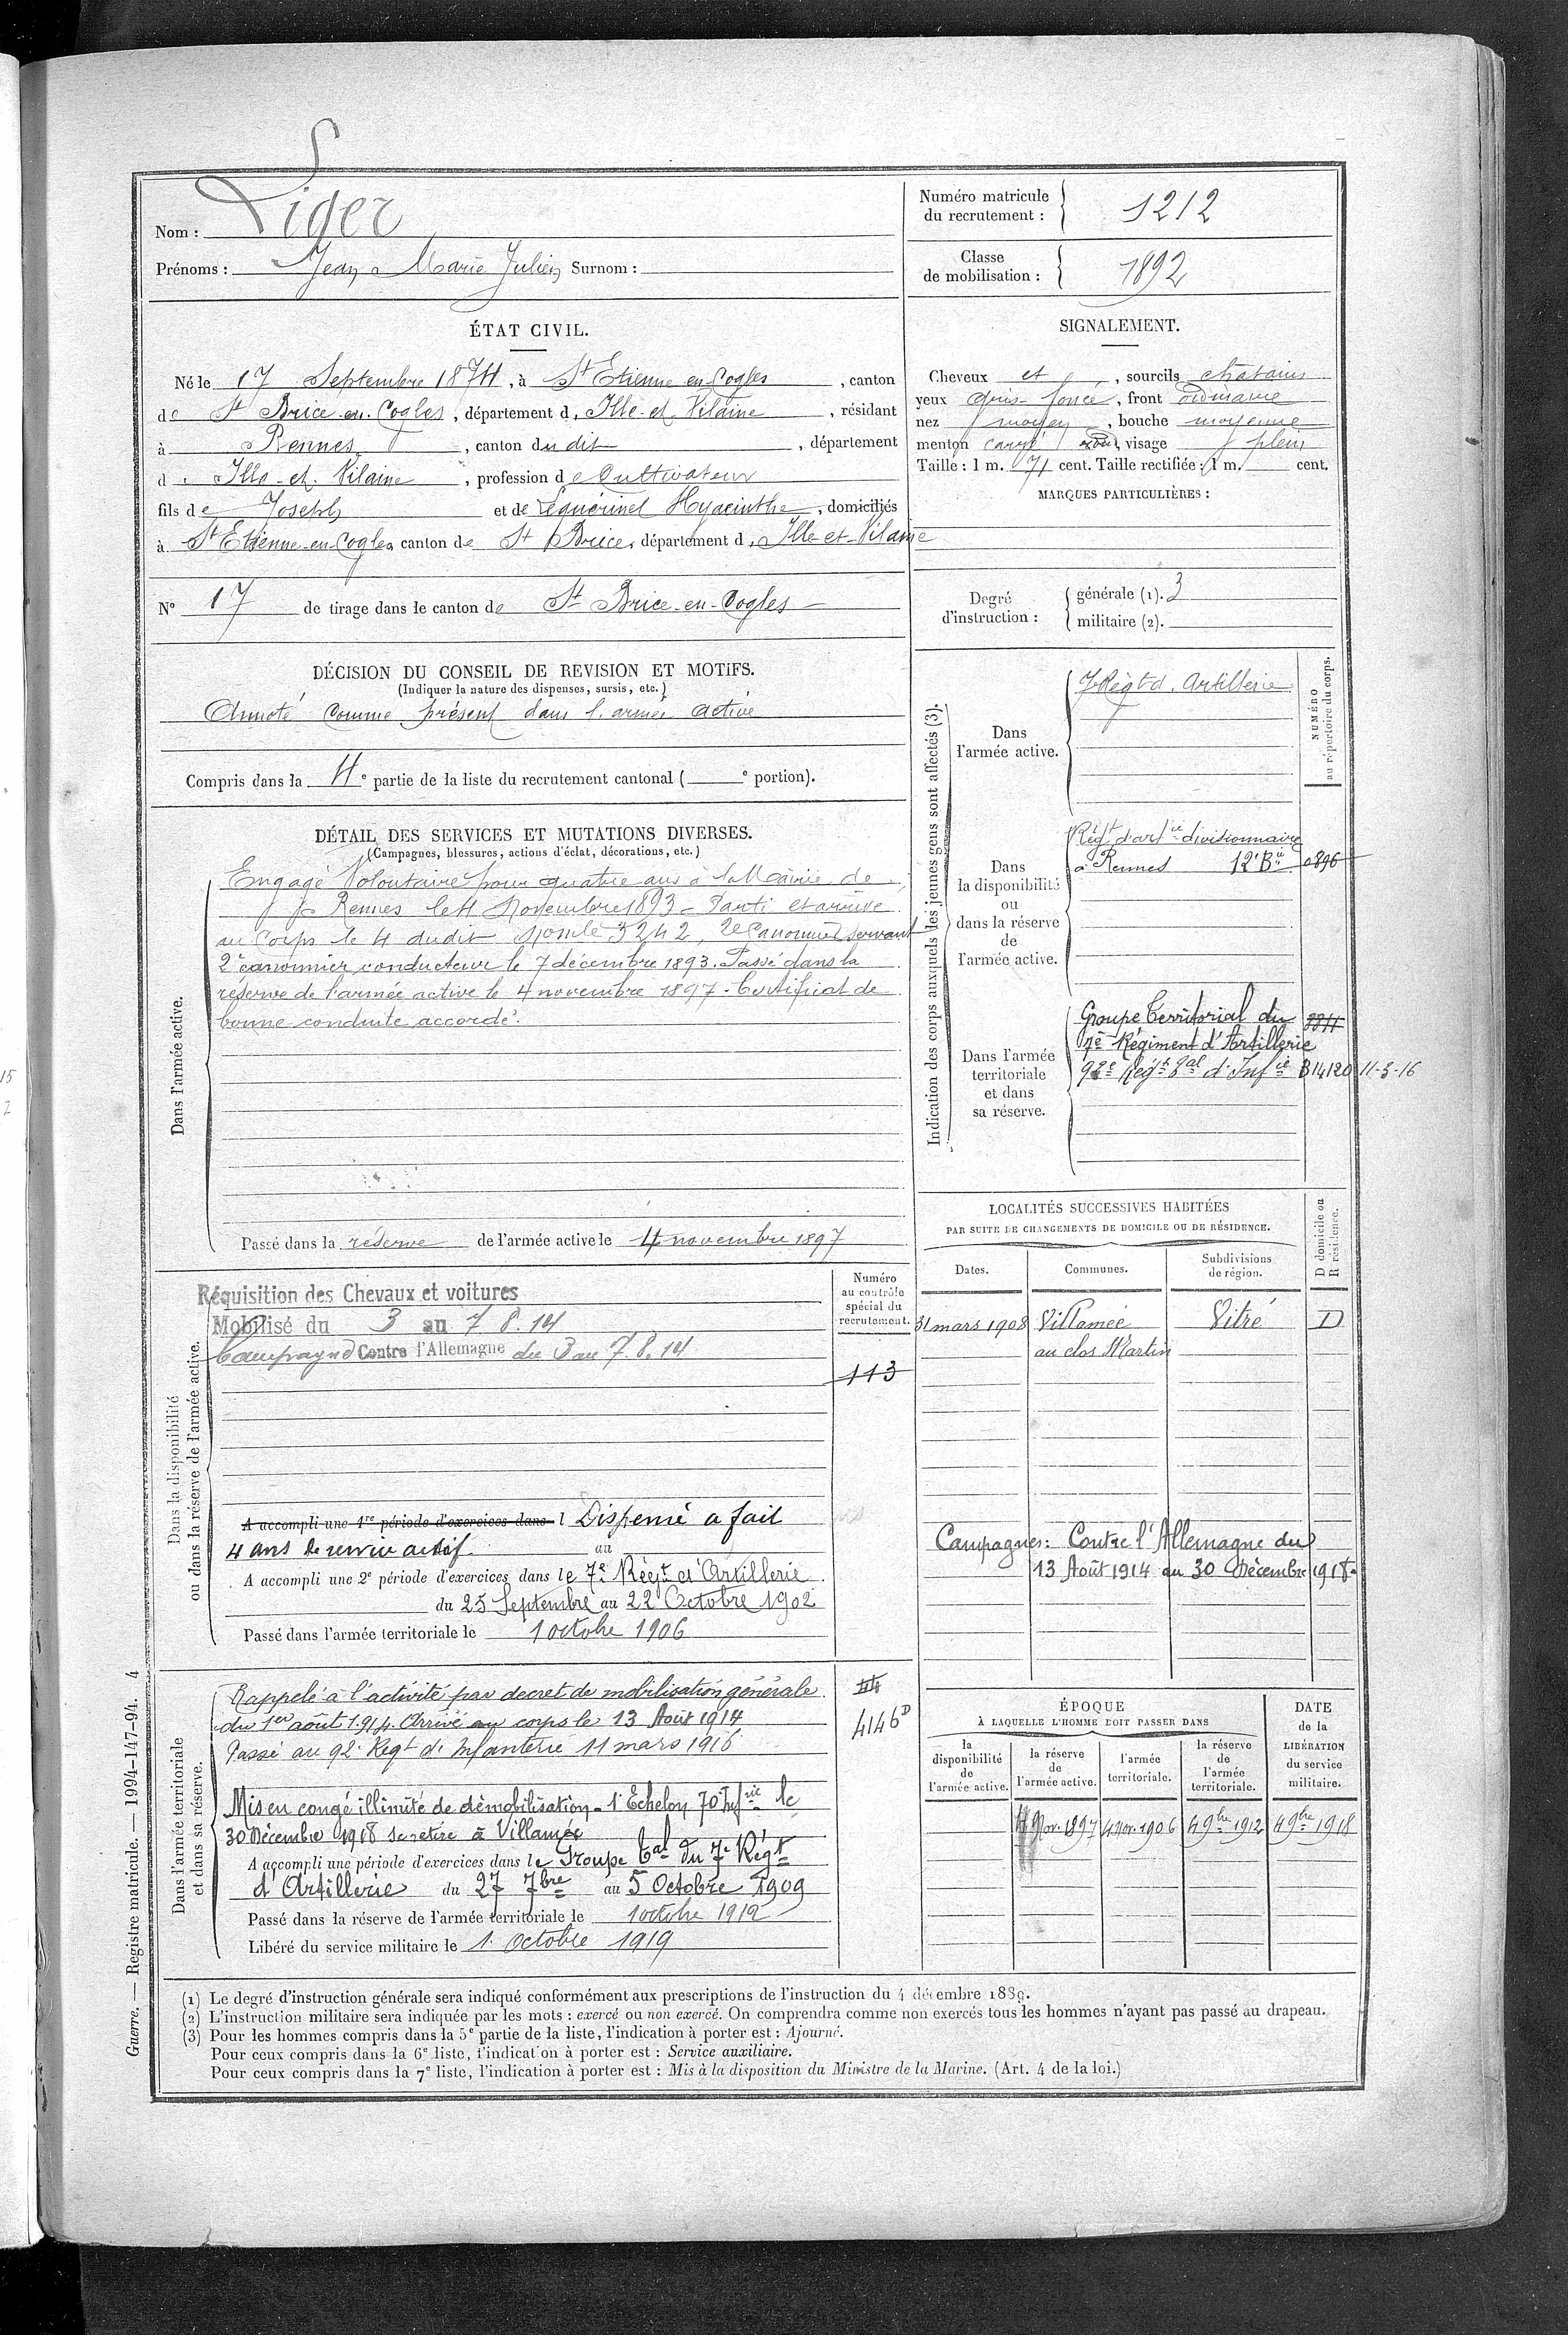 Nom : Liger
Prénoms : Jean Marie Julien Surnom :
Numéro matricule
du recrutement : 1212
Classe
de mobilisation : 1892
ÉTAT CIVIL.
Né le 17 Septembre 1874, à St Etienne en Cogles, canton
de St Brice-en-Cogles, département d'Ille-et-Vilaine, résidant
à Rennes, canton dudit, département
d'Ille-et-Vilaine, profession de Cultivateur
fils de Joseph et de Lequérinel Hyacinthe, domiciliés
à St Etienne-en-Cogles canton de St Brice, département d'Ille-et-Vilaine
N° 17 de tirage dans le canton de St Brice-en-Cogles
SIGNALEMENT.
Cheveux et, sourcils chatains
yeux gris-foncé, front ordinaire
nez moyen, bouche moyenne
menton carré rond, visage plein
Taille : 1 m. 71 cent. Taille rectifiée : 1 m. cent.
MARQUES PARTICULIÈRES :
Degré
d'instruction :
générale (1). 3
militaire (2).
DÉCISION DU CONSEIL DE REVISION ET MOTIFS.
(Indiquer la nature des dispenses, sursis, etc.)
Annoté comme présent dans l'armée active
Compris dans la 4e partie de la liste du recrutement cantonal ( e portion).
DÉTAIL DES SERVICES ET MUTATIONS DIVERSES.
(Campagnes, blessures, actions d'éclat, décorations, etc.)
Dans l'armée active.
Engagé Volontaire pour quatre ans à la Mairie de
Rennes le 4 Novembre 1893 - Parti et arrivé
au Corps le 4 dudit 5242, 2e Canonnier servant
2e canonnier conducteur le 7 décembre 1893. Passé dans la
réserve de l'armée active le 4 novembre 1897. Certificat de
bonne conduite accordé.
Passé dans la réserve de l'armée active le 4 novembre 1897
Indication des corps auxquels les jeunes gens sont affectés (3).
NUMÉRO
au répertoire du corps.
Dans
l'armée active.
7e Régt d'Artillerie
Dans
la disponibilité
ou
dans la réserve
de
l'armée active.
Régt d'artie divisionnaire
à Rennes 12e Bie 0896
Dans l'armée
territoriale
et dans
sa réserve.
Groupe Territorial du
7e Régiment d'Artillerie
92e Régt Tal d'Infie B14120 11-3-16
Dans la disponibilité
ou dans la réserve de l'armée active.
Réquisition des Chevaux et voitures
Mobilisé du 3 au 7 8.14
Campagne Contre l'Allemagne du 3 au 7.8.14
Numéro
au contrôle
spécial du
recrutement.
113
A accompli une 1re période d'exercices dans l Dispensé a fait
4 ans de service actif. au
A accompli une 2e période d'exercices dans le 7e Régt d'Artillerie
du 25 Septembre au 22 Octobre 1902
Passé dans l'armée territoriale le 1 octobre 1906
LOCALITÉS SUCCESSIVES HABITÉES
PAR SUITE DE CHANGEMENTS DE DOMICILE OU DE RÉSIDENCE.
Dates. Communes. Subdivisions
de région.
D domicile ou
R résidence.
31 mars 1908 Villamée Vitré D
au clos Martin
Campagnes : Contre l'Allemagne du
13 Août 1914 au 30 Décembre 1918.
Dans l'armée territoriale
et dans sa réserve.
Rappelé à l'activité par decret de mobilisation générale
du 1er août 1914. Arrivé au corps le 13 Août 1914
Passé au 92e Régt d'Infanterie 11 mars 1916
4146D
Mis en congé illimité de démobilisation - 1er Echelon 70e Infrie le
30 Décembre 1918 se retire à Villamée
A accompli une période d'exercices dans le Groupe Tal du 7e Régt
d'Artillerie du 27 7bre au 5 Octobre 1909
Passé dans la réserve de l'armée territoriale le 1 octobre 1912
Libéré du service militaire le 1 Octobre 1919
ÉPOQUE
À LAQUELLE L'HOMME DOIT PASSER DANS
DATE
de la
LIBÉRATION
du service
militaire.
la
disponibilité
de
l'armée active.
la réserve
de
l'armée active.
l'armée
territoriale.
la réserve
de
l'armée
territoriale.
4 Nov. 1897 4 Nov. 1906 4 9bre 1912 4 9bre 1918
(1) Le degré d'instruction générale sera indiqué conformément aux prescriptions de l'instruction du 4 décembre 1889.
(2) L'instruction militaire sera indiquée par les mots : exercé ou non exercé. On comprendra comme non exercés tous les hommes n'ayant pas passé au drapeau.
(3) Pour les hommes compris dans la 5e partie de la liste, l'indication à porter est : Ajourné.
Pour ceux compris dans la 6e liste, l'indication à porter est : Service auxiliaire.
Pour ceux compris dans la 7e liste, l'indication à porter est : Mis à la disposition du Ministre de la Marine. (Art. 4 de la loi.)
Guerre. — Registre matricule. — 1994-147-94. 4